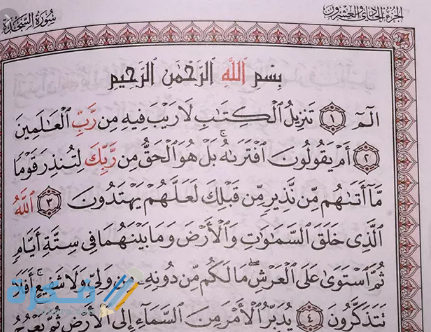 الجزء الحادي والعشرون
سورة السجدة
بِسْمِ اللَّهِ الرَّحْمَٰنِ الرَّحِيمِ
الٓمٓ ۝١ تَنزِيلُ الْكِتَٰبِ لَا رَيْبَ فِيهِ مِن رَّبِّ الْعَٰلَمِينَ
۝٢ أَمْ يَقُولُونَ افْتَرَىٰهُ ۚ بَلْ هُوَ الْحَقُّ مِن رَّبِّكَ لِتُنذِرَ قَوْمًا
مَّآ أَتَىٰهُم مِّن نَّذِيرٍ مِّن قَبْلِكَ لَعَلَّهُمْ يَهْتَدُونَ ۝٣ اللَّهُ
الَّذِي خَلَقَ السَّمَٰوَٰتِ وَالْأَرْضَ وَمَا بَيْنَهُمَا فِي سِتَّةِ أَيَّامٍ
ثُمَّ اسْتَوَىٰ عَلَى الْعَرْشِ ۖ مَا لَكُم مِّن دُونِهِ مِن وَلِيٍّ وَلَا شَفِيعٍ ۚ أَفَلَا
تَتَذَكَّرُونَ ۝٤ يُدَبِّرُ الْأَمْرَ مِنَ السَّمَآءِ إِلَى الْأَرْضِ ثُمَّ يَعْرُجُ
فكرة